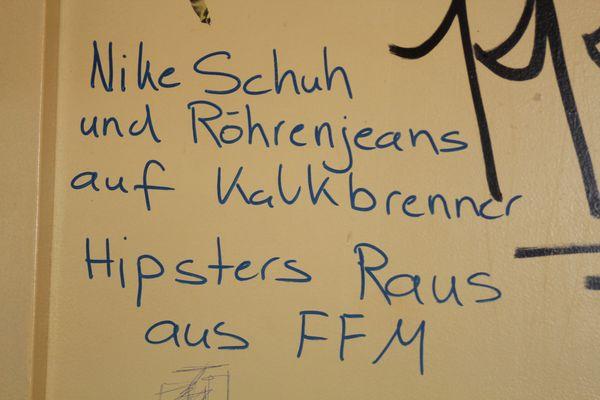 Nike Schuh
und Röhrenjeans
auf Kalkbrenner
Hipsters Raus
aus FFM